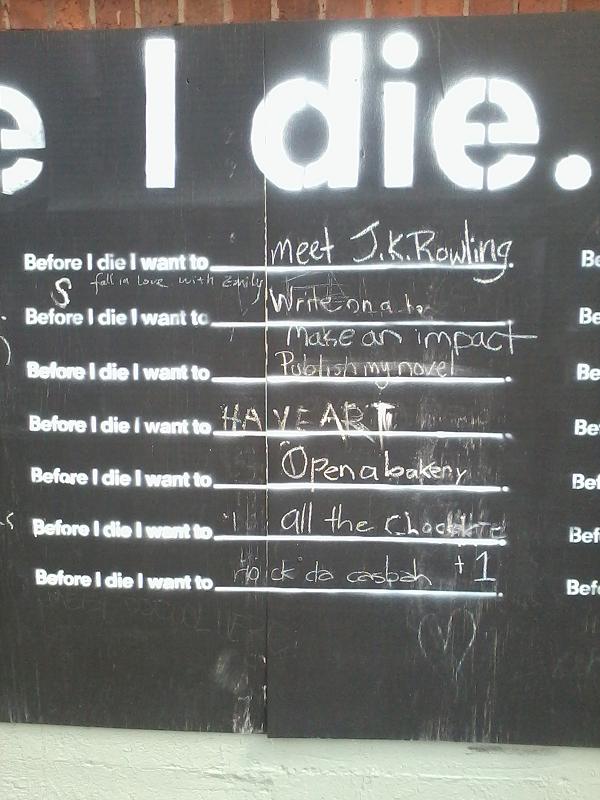 e I die.
Before I die I want to meet J.K.Rowling. Be
S fall in love with Emily
Before I die I want to Write on a Be
Make an impact
Before I die I want to Publish my novel . Be
Before I die I want to HAVE ART . Be
Before I die I want to Open a bakery . Bef
Before I die I want to all the Chocolate . Bef
Before I die I want to rock da casbah +1 . Befo